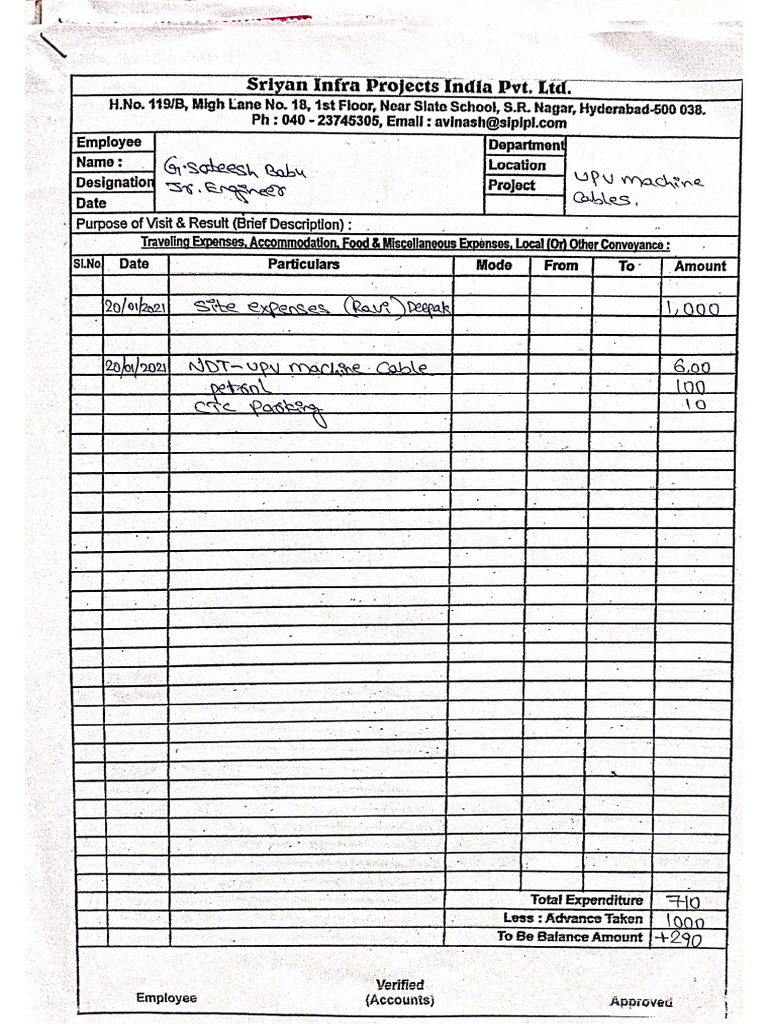 Sriyan Infra Projects India Pvt. Ltd.
H.No. 119/B, Migh Lane No. 18, 1st Floor, Near Slate School, S.R. Nagar, Hyderabad-500 038.
Ph : 040 - 23745305, Email : avinash@sipipl.com
Employee Department
Name : G. Sateesh Babu Location
Designation Jr. Engineer Project UPV machine
Date Cables.
Purpose of Visit & Result (Brief Description) :
Traveling Expenses, Accommodation, Food & Miscellaneous Expenses, Local (Or) Other Conveyance :
Sl.No Date Particulars Mode From To Amount
20/01/2021 Site expenses (Ravi) Deepak 1,000
20/01/2021 NDT-UPV machine Cable 6,00
petrol 100
CTC Parking 10
Total Expenditure 710
Less : Advance Taken 1000
To Be Balance Amount +290
Employee Verified (Accounts) Approved